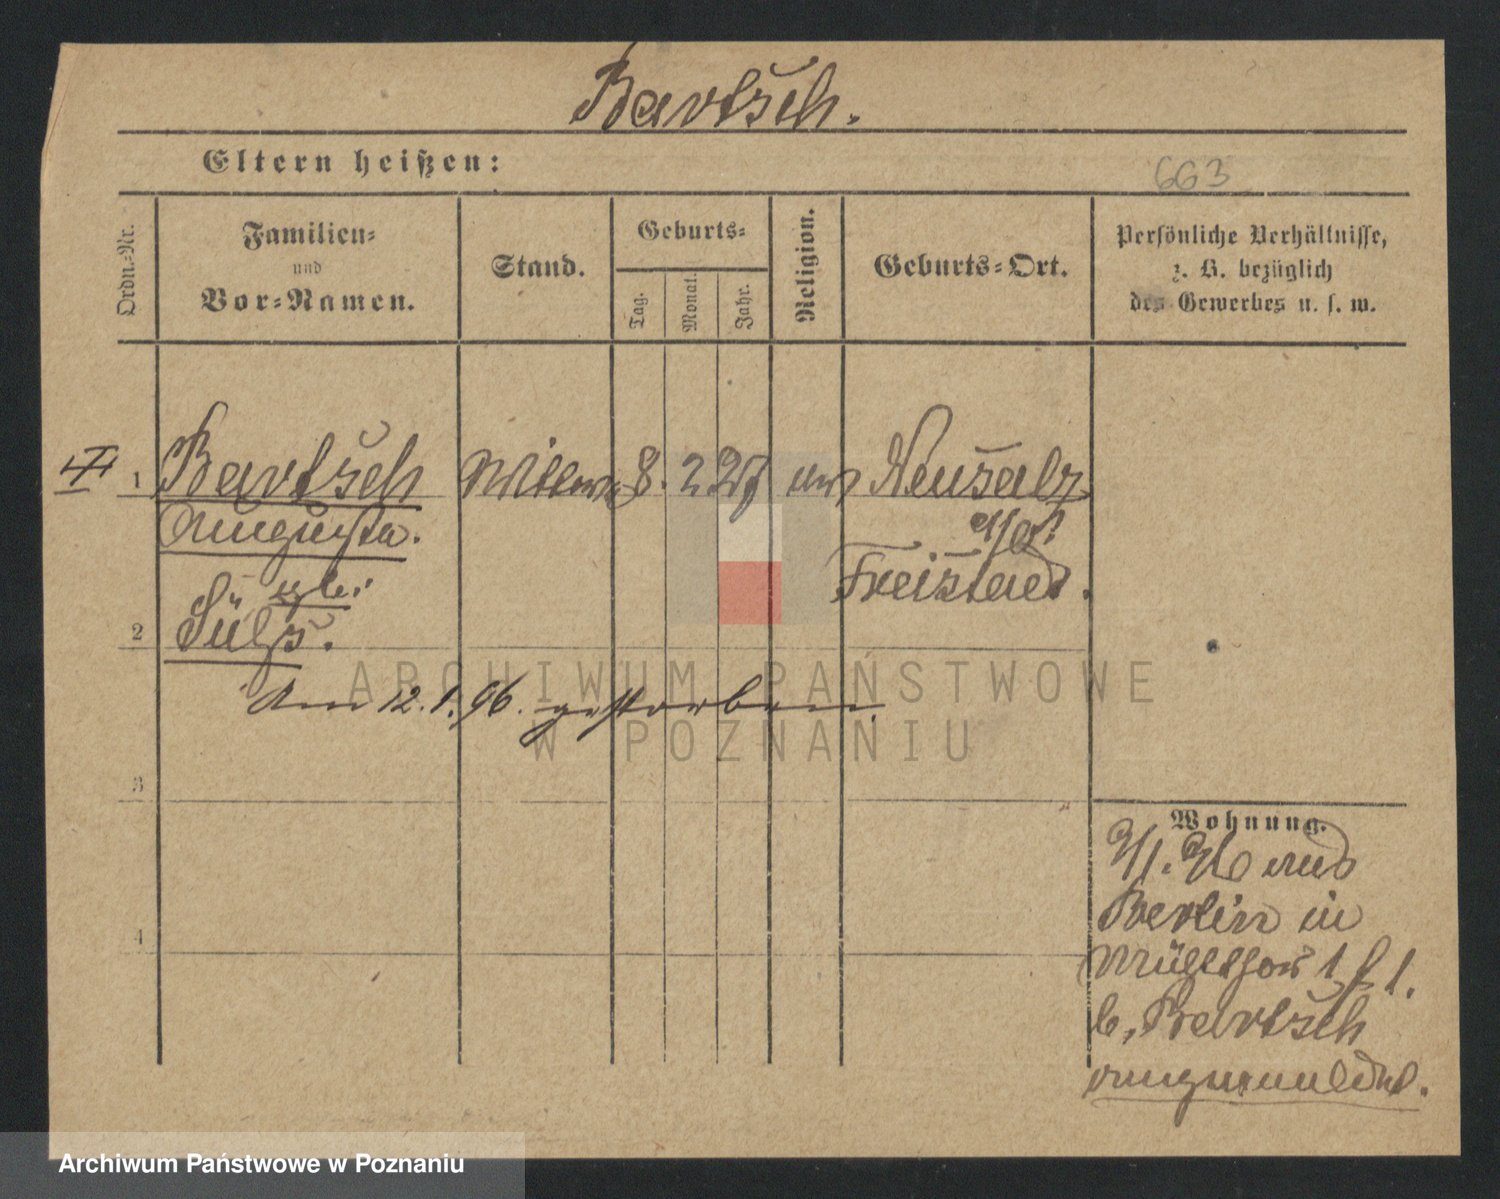 Bartsch.
Eltern heißen:
663
Ordn.-Nr.
Familien-
und
Vor-Namen.
Stand.
Geburts-
Tag.
Monat.
Jahr.
Religion.
Geburts-Ort.
Persönliche Verhältnisse,
z. B. bezüglich
des Gewerbes u. s. w.
1 Bartsch Wittwe 8. 2 27 ev Neusalz
Augusta.
Freistadt.
geb.
2 Sülz.
Am 12.1.96. gestorben.
3
4
Wohnung.
aus
Berlin in
Mühlthor 1
b. Bartsch
angemeldet.
ARCHIWUM PAŃSTWOWE
W POZNANIU
Archiwum Państwowe w Poznaniu